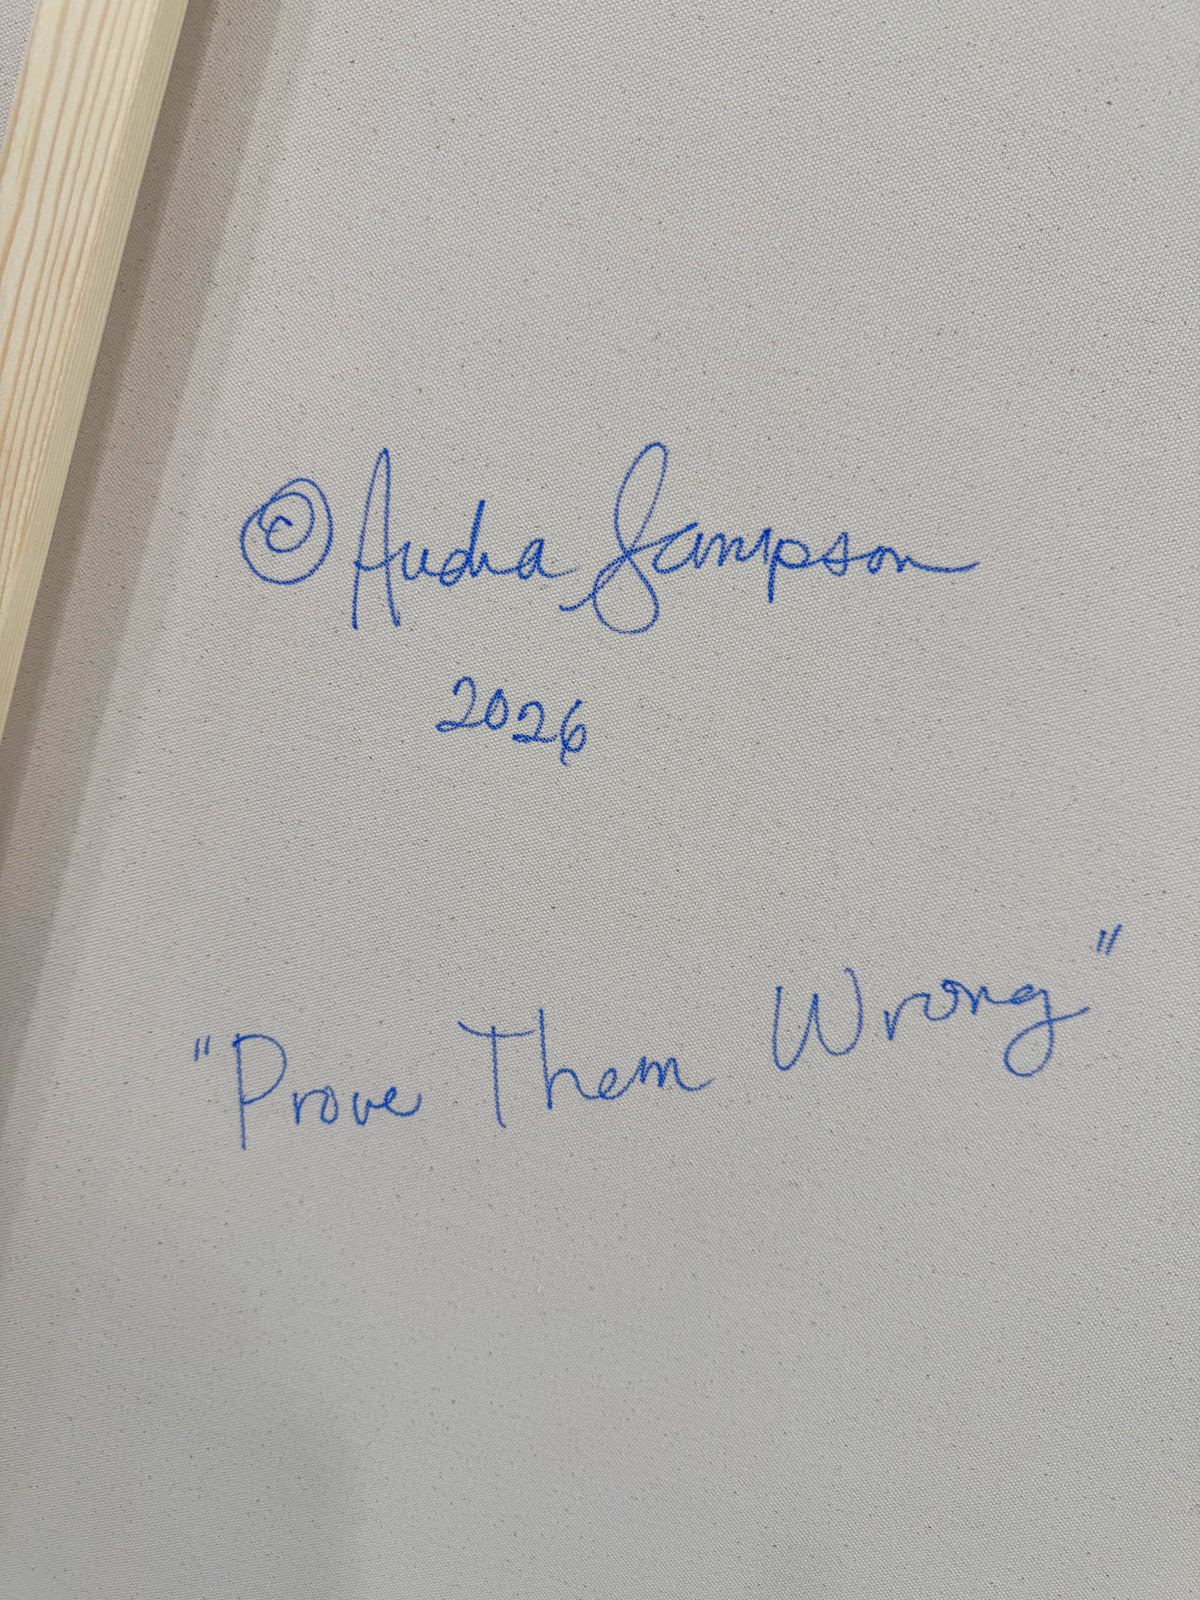 © Audra Sampson
2026
"Prove Them Wrong"